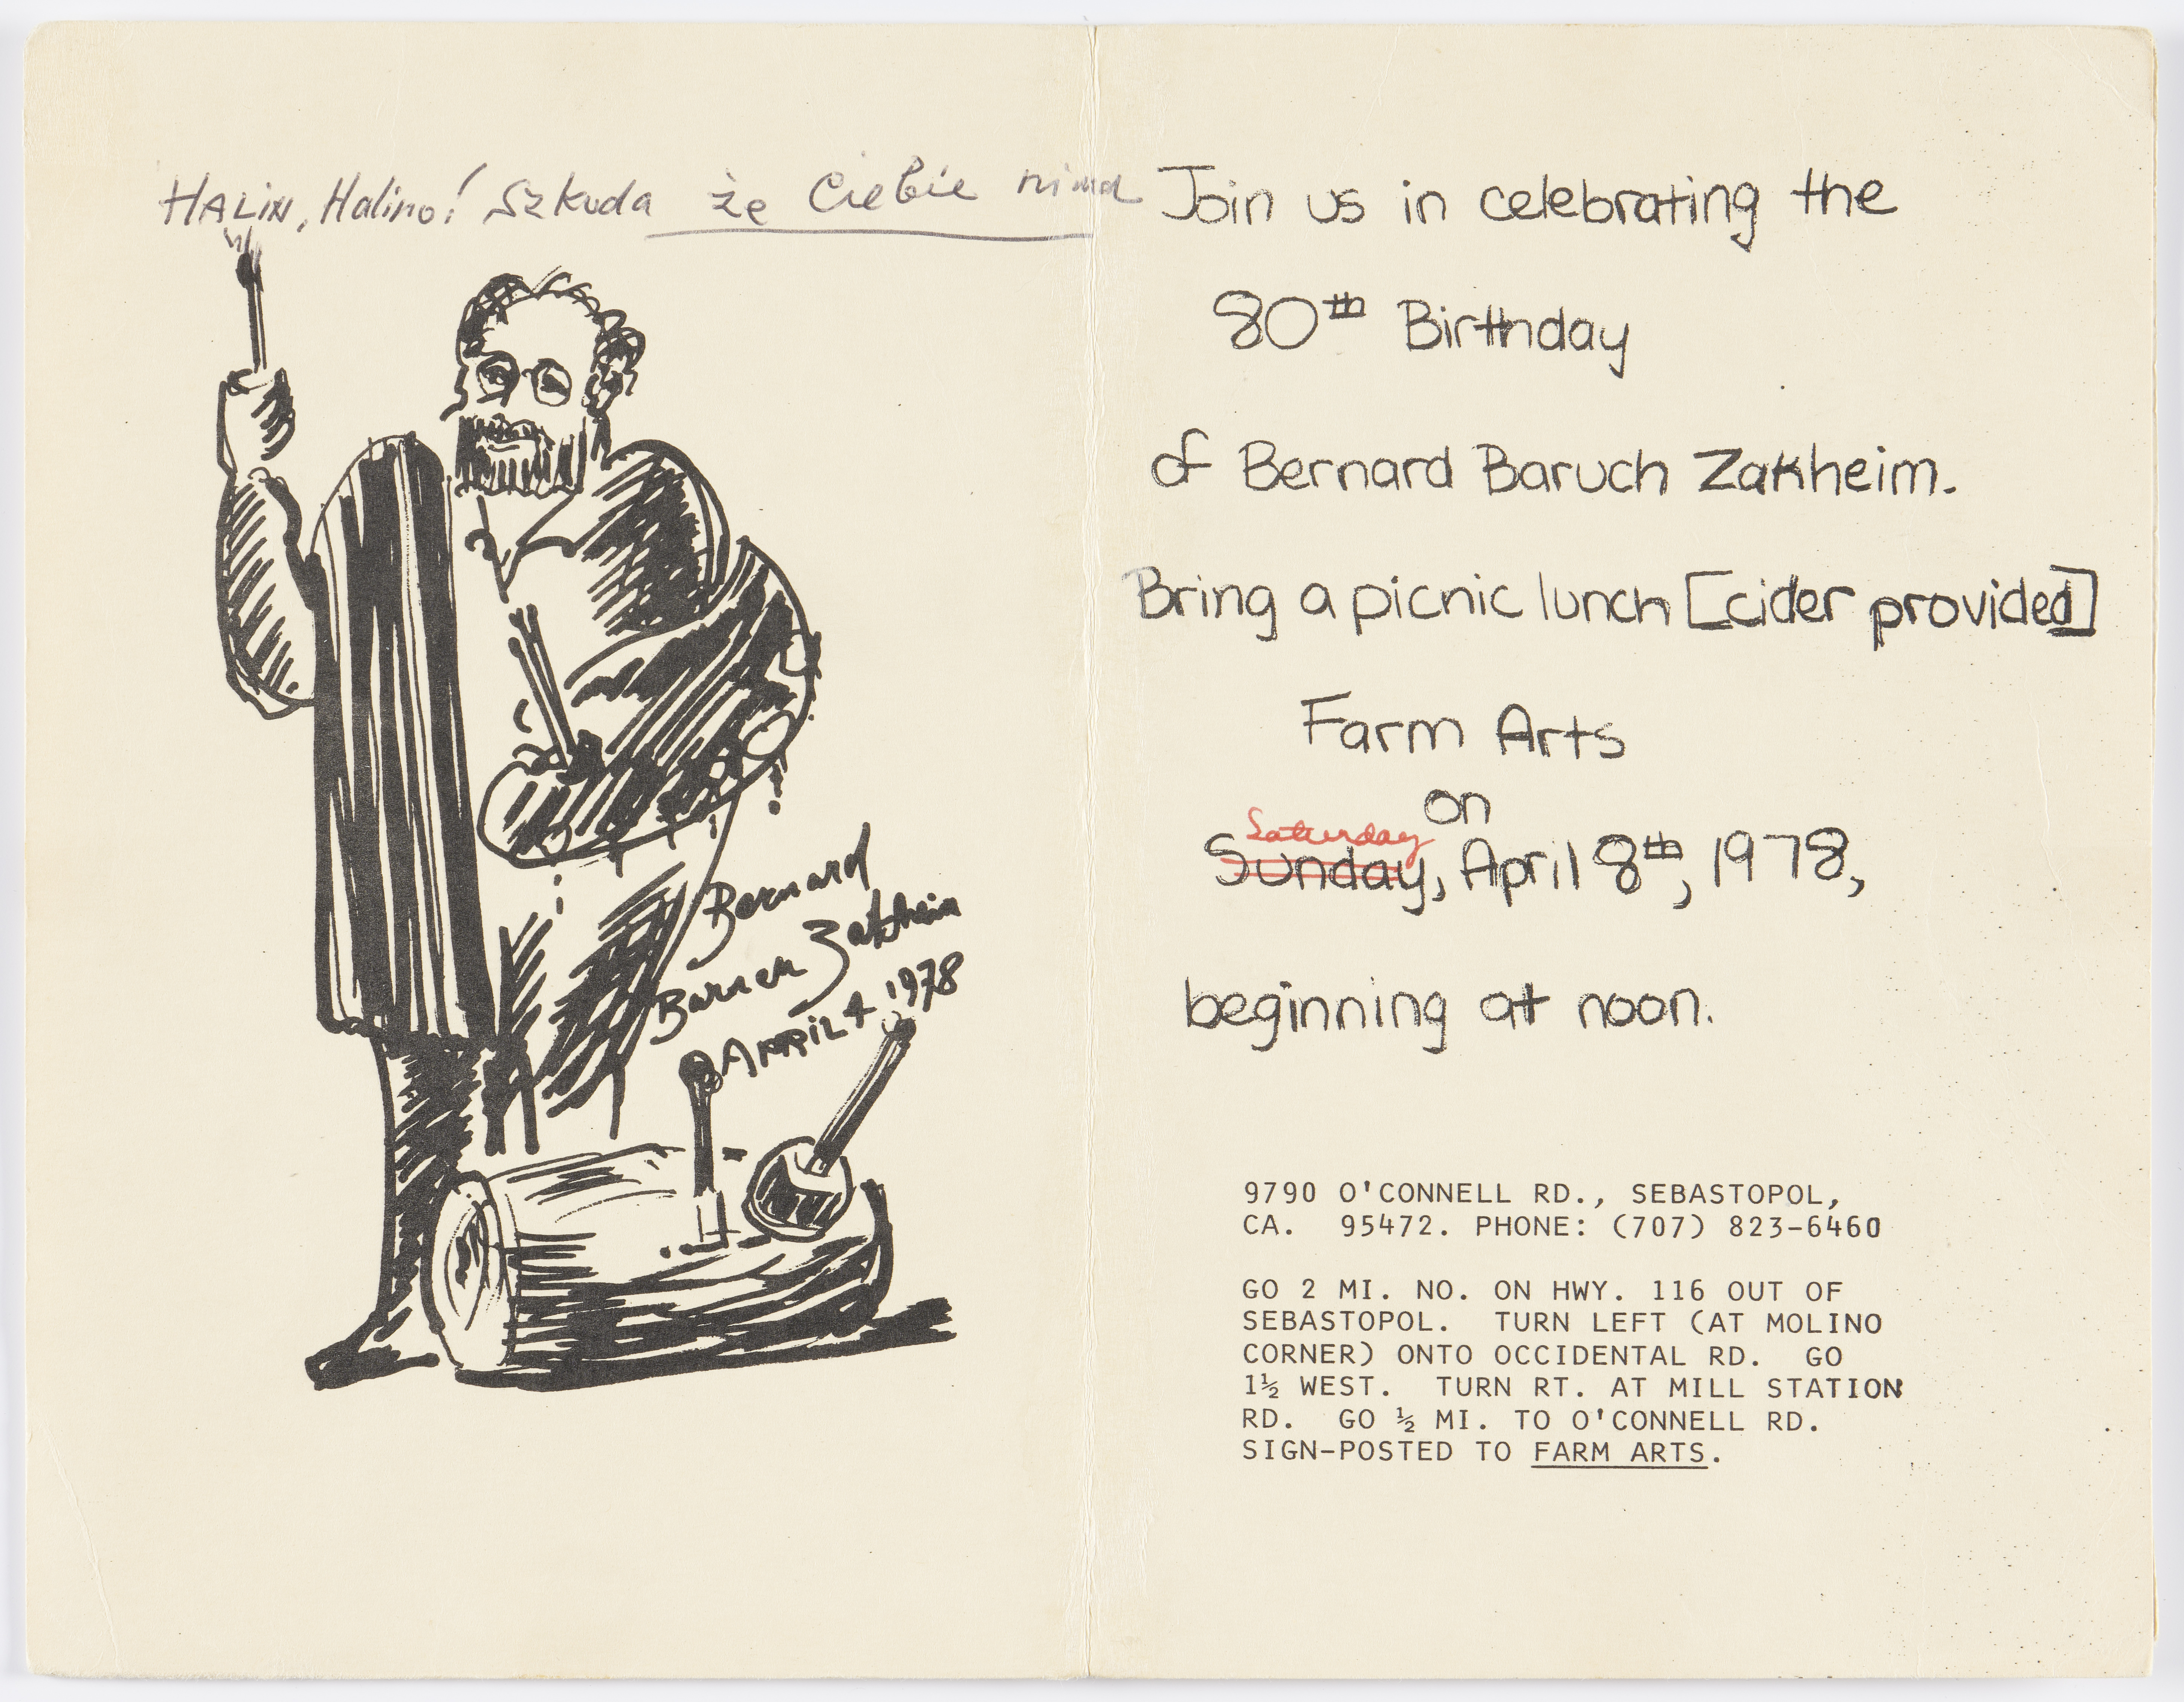 HALIN, Halino! Szkoda że Ciebie nima
Bernard
Baruch Zakheim
APRIL 4 1978
Join us in celebrating the
80th Birthday
of Bernard Baruch Zakheim.
Bring a picnic lunch [cider provided]
Farm Arts
on
Saturday
Sunday, April 8th, 1978,
beginning at noon.
9790 O'CONNELL RD., SEBASTOPOL,
CA. 95472. PHONE: (707) 823-6460
GO 2 MI. NO. ON HWY. 116 OUT OF
SEBASTOPOL. TURN LEFT (AT MOLINO
CORNER) ONTO OCCIDENTAL RD. GO
1½ WEST. TURN RT. AT MILL STATION
RD. GO ½ MI. TO O'CONNELL RD.
SIGN-POSTED TO FARM ARTS.